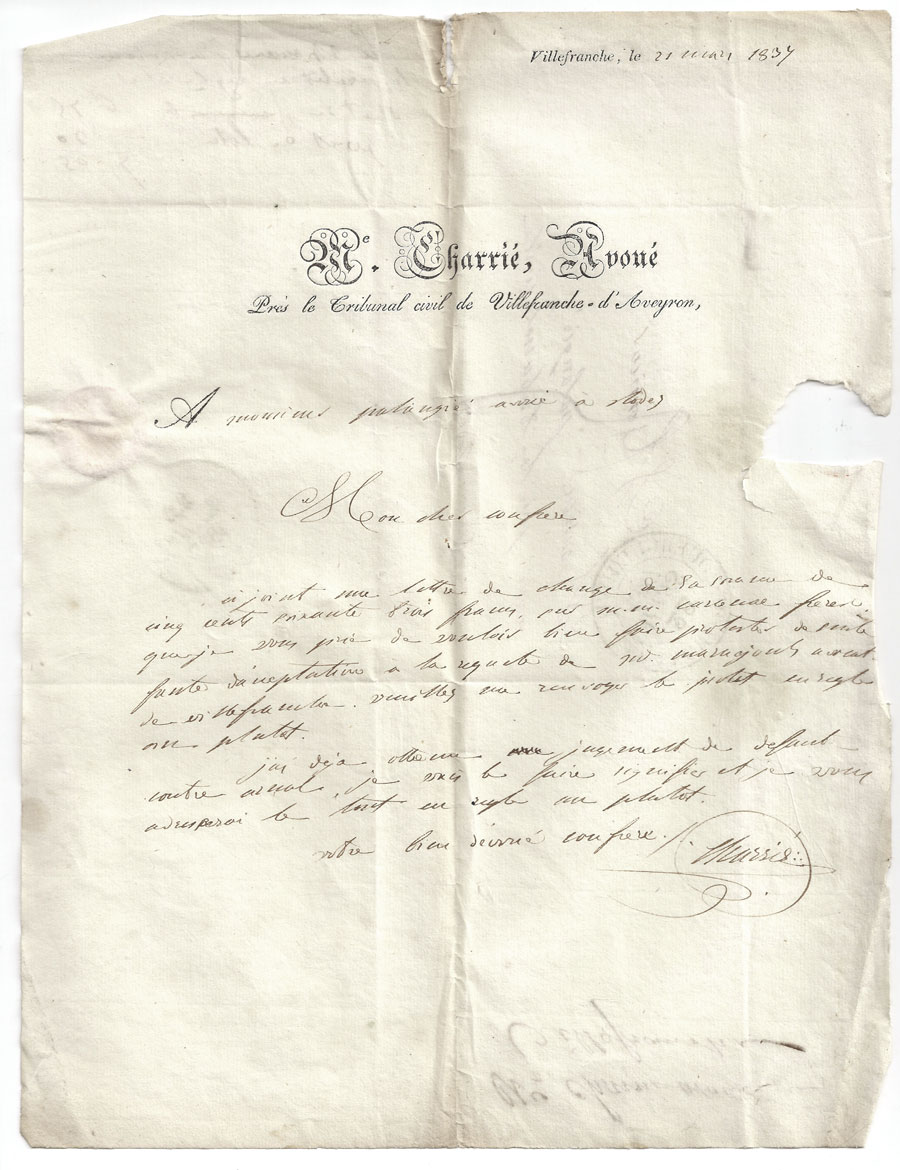 Villefranche, le 21 mars 1837
Me. Charrié, Avoué
Près le Tribunal civil de Villefranche-d'Aveyron,
A monsieur palangié avoué a Rodez
Mon cher confrere
ci joint une lettre de change de la somme de
cinq cents soixante trois francs, sur m.m. carcenac freres,
que je vous prie de vouloir bien faire protester de suite
faute d'acceptation a la requete de mr. avocat
de villefranche. veuillez me renvoyer le protet en regle
au plutot.
j'ai deja obtenu jugement de deffaut
contre arnal, je vais le faire signifier et je vous
adresserai le tout en regle au plutot.
votre bien dévoué confrere./.
Charrié